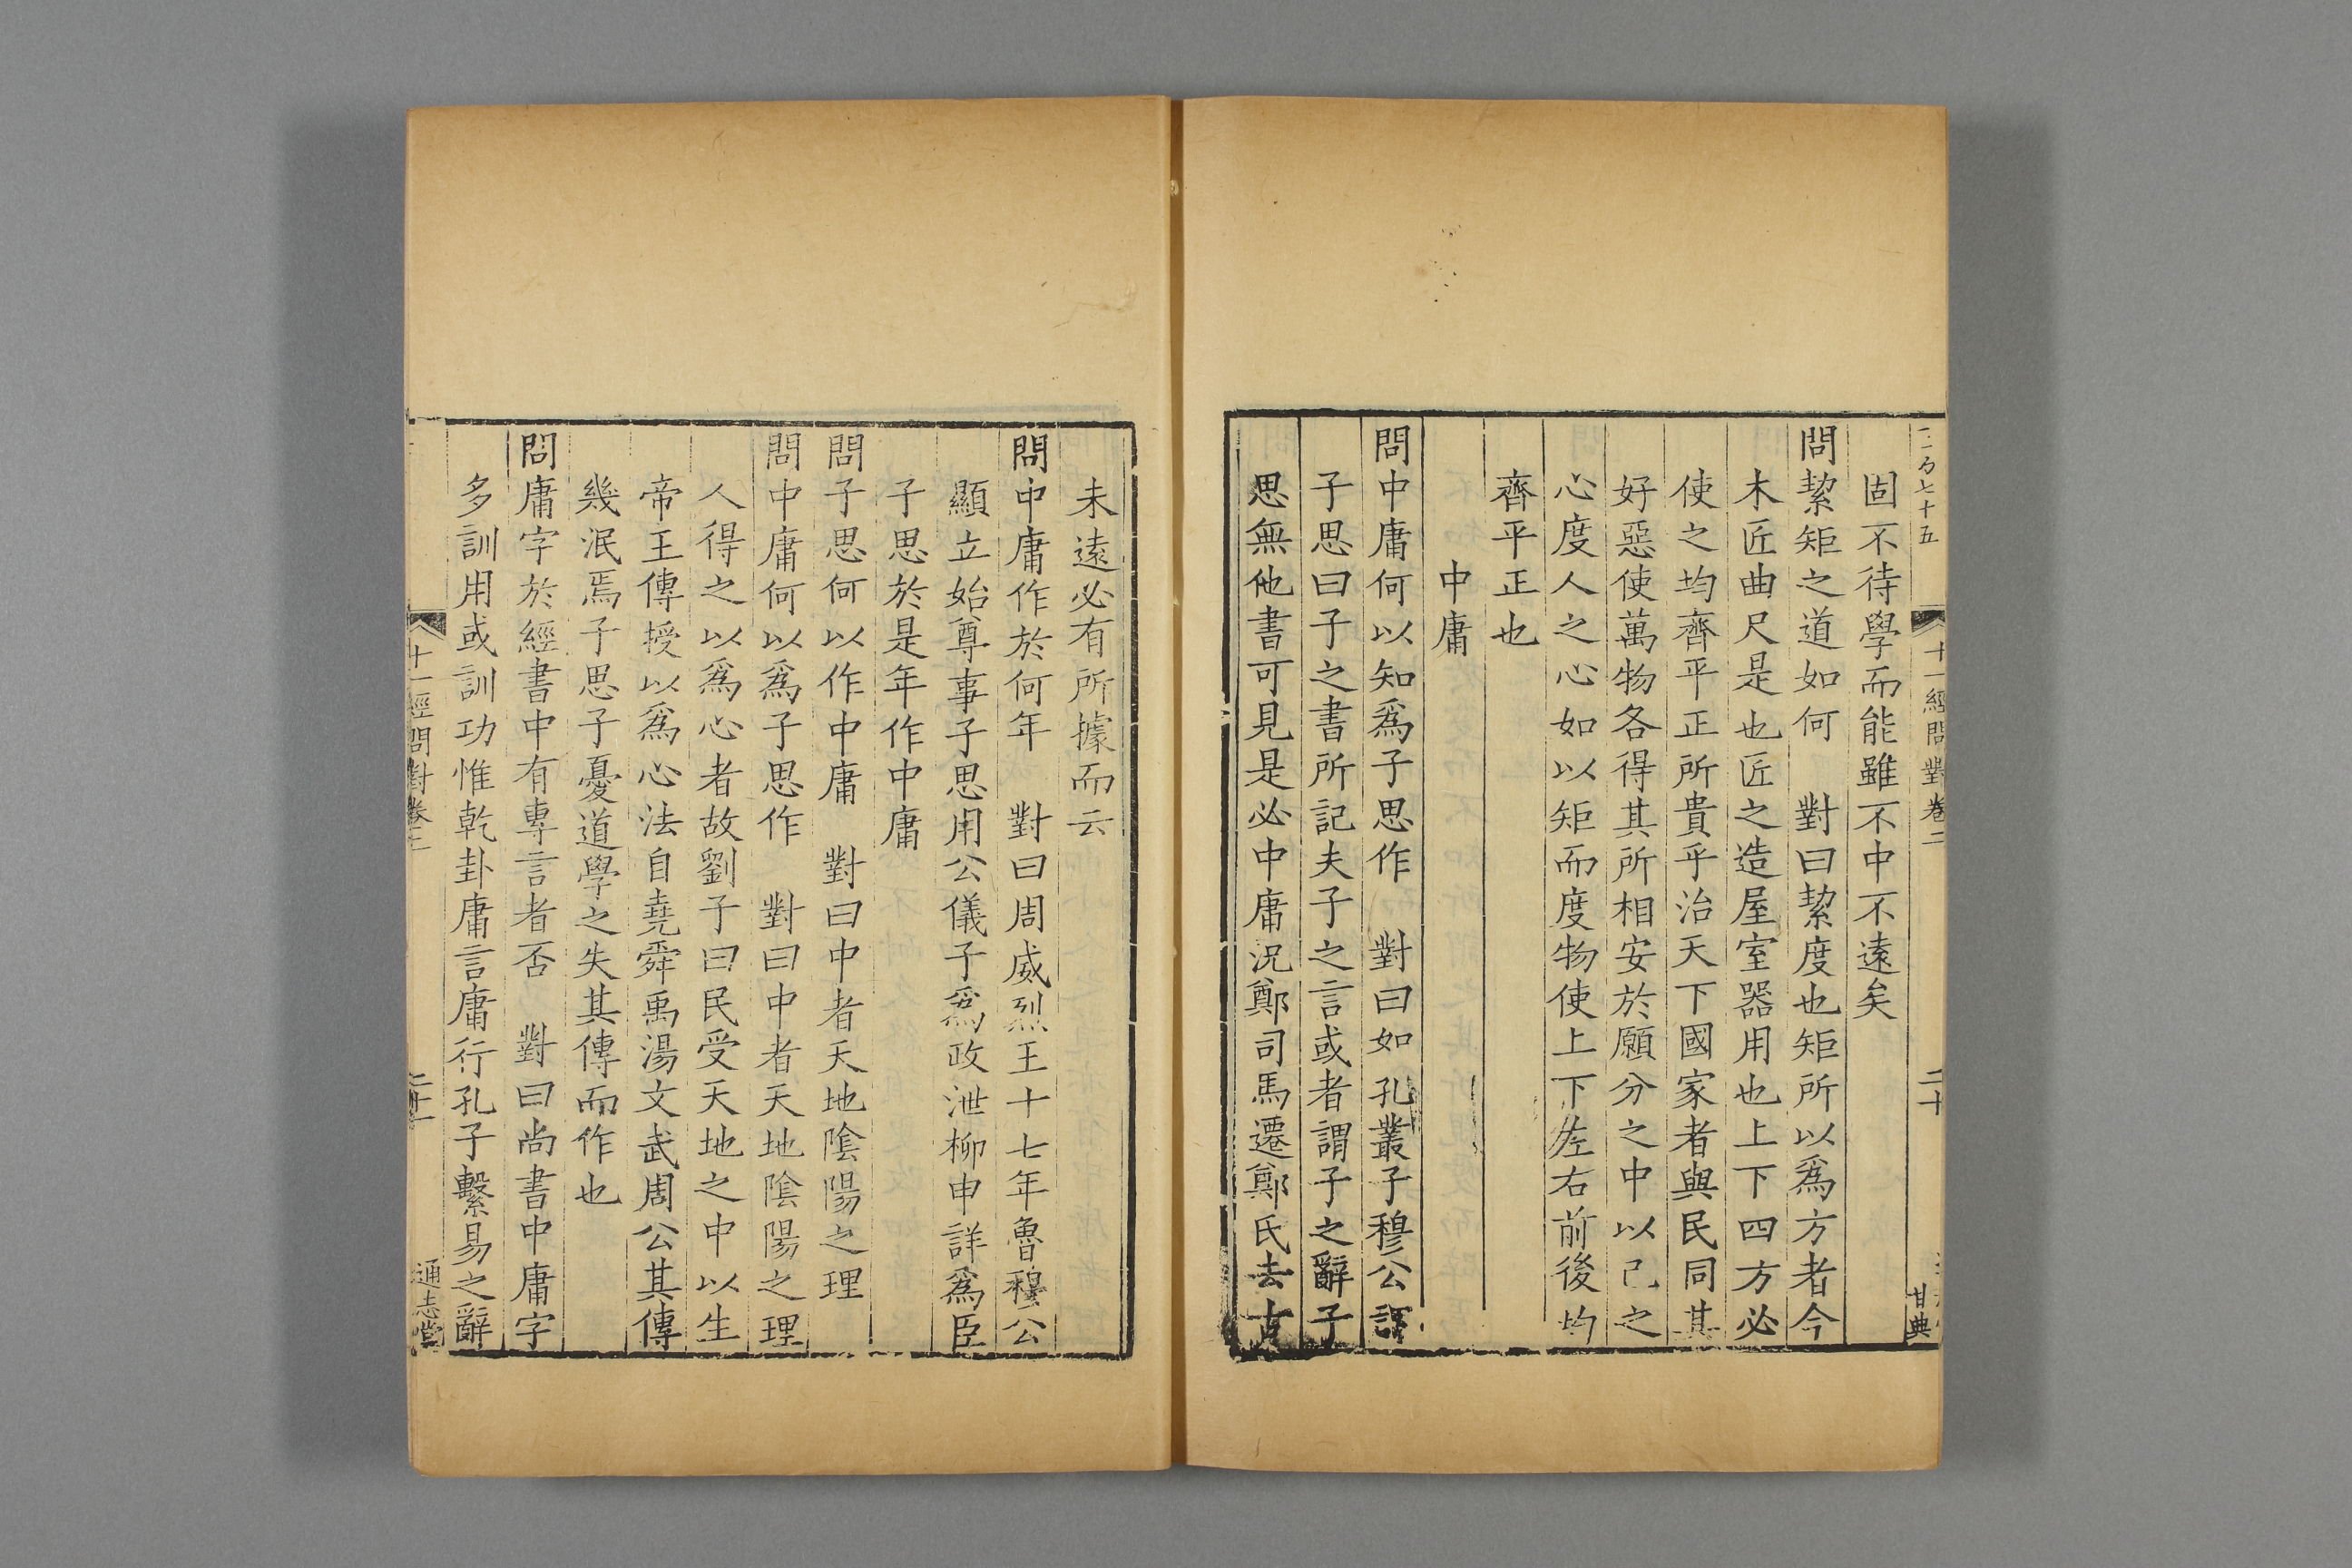 十一經問對卷二
二十
甘典
固不待學而能雖不中不遠矣
問絜矩之道如何 對曰絜度也矩所以爲方者今
木匠曲尺是也匠之造屋室器用也上下四方必
使之均齊平正所貴乎治天下國家者與民同其
好惡使萬物各得其所相安於願分之中以己之
心度人之心如以矩而度物使上下左右前後均
齊平正也
中庸
問中庸何以知爲子思作 對曰如孔叢子穆公謂
子思曰子之書所記夫子之言或者謂子之辭子
思無他書可見是必中庸況鄭司馬遷鄭氏去古
未遠必有所據而云
問中庸作於何年 對曰周威烈王十七年魯穆公
顯立始尊事子思用公儀子爲政泄柳申詳爲臣
子思於是年作中庸
問子思何以作中庸 對曰中者天地陰陽之理
問中庸何以爲子思作 對曰中者天地陰陽之理
人得之以爲心者故劉子曰民受天地之中以生
帝王傳授以爲心法自堯舜禹湯文武周公其傳
幾泯焉子思子憂道學之失其傳而作也
問庸字於經書中有專言者否 對曰尚書中庸字
多訓用或訓功惟乾卦庸言庸行孔子繫易之辭
十一經問對卷二
通志堂